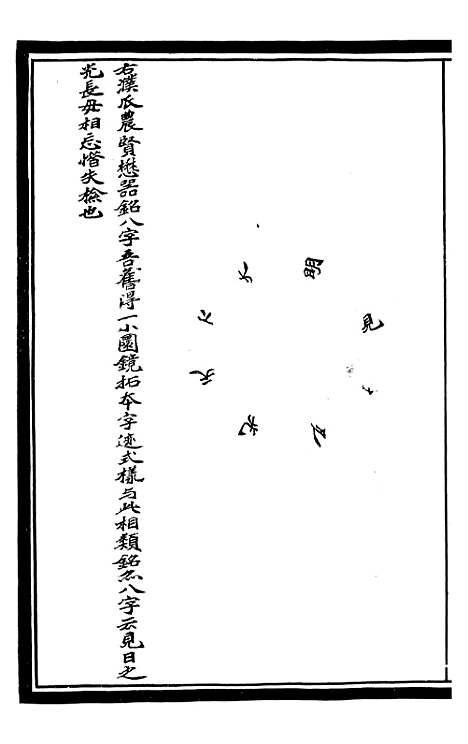 見
之
光
天
下
大
明
右濮瓜農賢懋器銘八字吾舊得一小圓鏡拓本字迹式樣与此相類銘亦八字云見日之
光長毋相忘惜失檢也